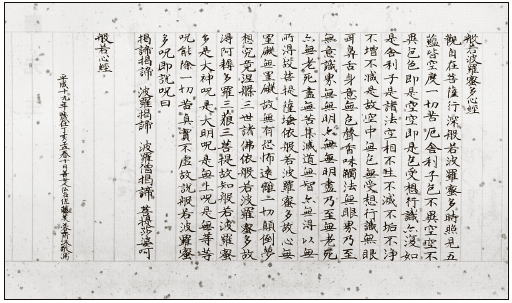 般若波羅蜜多心経
観自在菩薩行深般若波羅蜜多時照見五
蘊皆空度一切苦厄舎利子色不異空空不
異色色即是空空即是色受想行識亦復如
是舎利子是諸法空相不生不滅不垢不浄
不増不減是故空中無色無受想行識無眼
耳鼻舌身意無色聲香味觸法無眼界乃至
無意識界無無明亦無無明盡乃至無老死
亦無老死盡無苦集滅道無智亦無得以無
所得故菩提薩埵依般若波羅蜜多故心無
罣礙無罣礙故無有恐怖遠離一切顛倒夢
想究竟涅槃三世諸佛依般若波羅蜜多故
得阿耨多羅三藐三菩提故知般若波羅蜜
多是大神呪是大明呪是無上呪是無等等
呪能除一切苦真實不虚故説般若波羅蜜
多呪即説呪曰
掲諦掲諦 波羅掲諦 波羅僧掲諦 菩提薩婆呵
般若心経
平成十九年